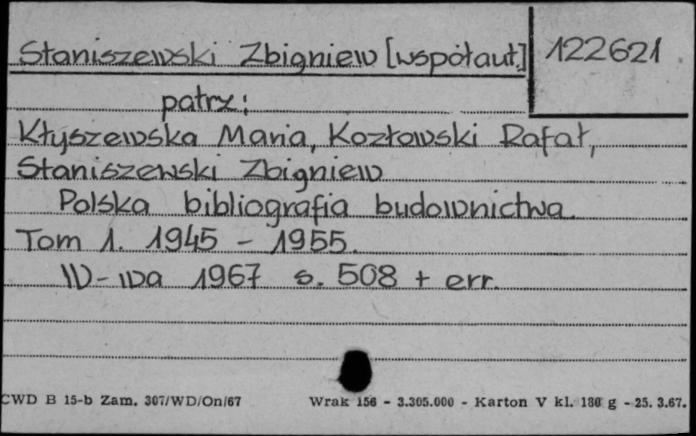 Staniszewski Zbigniew [współaut.] 122621
patrz:
Kłyszewska Maria, Kozłowski Rafał,
Staniszewski Zbigniew
Polska bibliografia budownictwa.
Tom 1. 1945 - 1955.
W-wa 1967 s. 508 + err.
CWD B 15-b Zam. 307/WD/On/67 Wrak 156 - 3.305.000 - Karton V kl. 180 g - 25. 3.67.